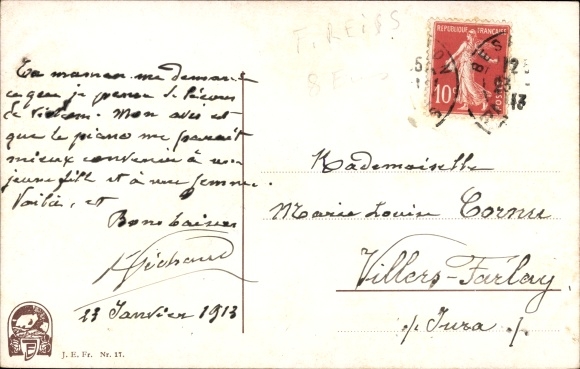 F. REISS
Ta maman me demande
ce que je pense de leçons
de violon. Mon avis est
que le piano me paraît
mieux convenir à une
jeune fille et à une femme.
Voilà, et
Bons baisers
Michaud
23 Janvier 1913
J. E. Fr. Nr. 17.
REPUBLIQUE FRANÇAISE
10c
POSTES
13
Mademoiselle
Marie Louise Cornu
Villers-Farlay
./. Jura ./.